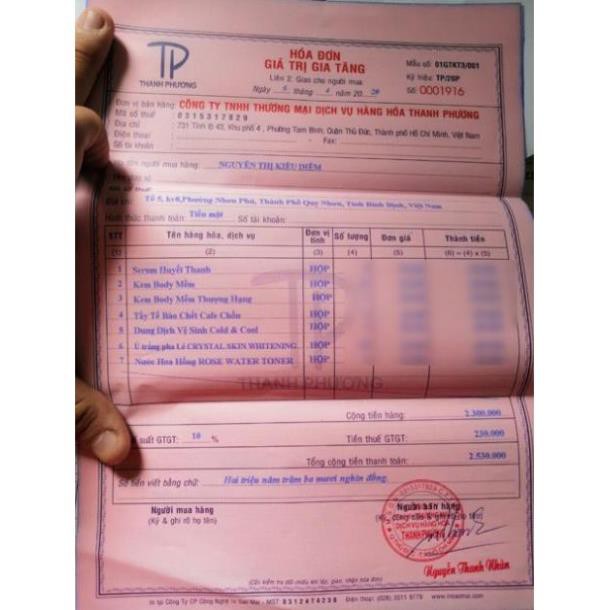 TP
THANH PHƯƠNG
HÓA ĐƠN
GIÁ TRỊ GIA TĂNG
Liên 2: Giao cho người mua
Ngày 6 tháng 4 năm 20 20
Mẫu số: 01GTKT3/001
Ký hiệu: TP/20P
Số: 0001916
Đơn vị bán hàng: CÔNG TY TNHH THƯƠNG MẠI DỊCH VỤ HÀNG HÓA THANH PHƯƠNG
Mã số thuế : 0315317829
Địa chỉ : 731 Tỉnh lộ 43, Khu phố 4, Phường Tam Bình, Quận Thủ Đức, Thành phố Hồ Chí Minh, Việt Nam
Điện thoại : - Fax:
Số tài khoản :
tên người mua hàng: NGUYỄN THỊ KIỀU DIỄM
chỉ: Tổ 5, kv8,Phường Nhơn Phú, Thành Phố Quy Nhơn, Tỉnh Bình Định, Việt Nam
Hình thức thanh toán: Tiền mặt Số tài khoản:
STT Tên hàng hóa, dịch vụ Đơn vị tính Số lượng Đơn giá Thành tiền
(1) (2) (3) (4) (5) (6) = (4) x (5)
1 Serum Huyết Thanh HỘP
2 Kem Body Mềm HỘP
3 Kem Body Mềm Thượng Hạng HỘP
4 Tẩy Tế Bào Chết Cafe Chồn HỘP
5 Dung Dịch Vệ Sinh Cold & Cool HỘP
6 Ủ trắng pha Lê CRYSTAL SKIN WHITENING HỘP
7 Nước Hoa Hồng ROSE WATER TONER HỘP
TP
THANH PHƯƠNG
Cộng tiền hàng: 2.300.000
suất GTGT: 10 % Tiền thuế GTGT: 230.000
Tổng cộng tiền thanh toán: 2.530.000
Số tiền viết bằng chữ: Hai triệu năm trăm ba mươi nghìn đồng.
Người mua hàng
(Ký & ghi rõ họ tên)
Người bán hàng
DỊCH VỤ HÀNG HÓA
THANH PHƯƠNG
Nguyễn Thanh Nhàn
(Cần kiểm tra đối chiếu khi lập, giao, nhận hóa đơn)